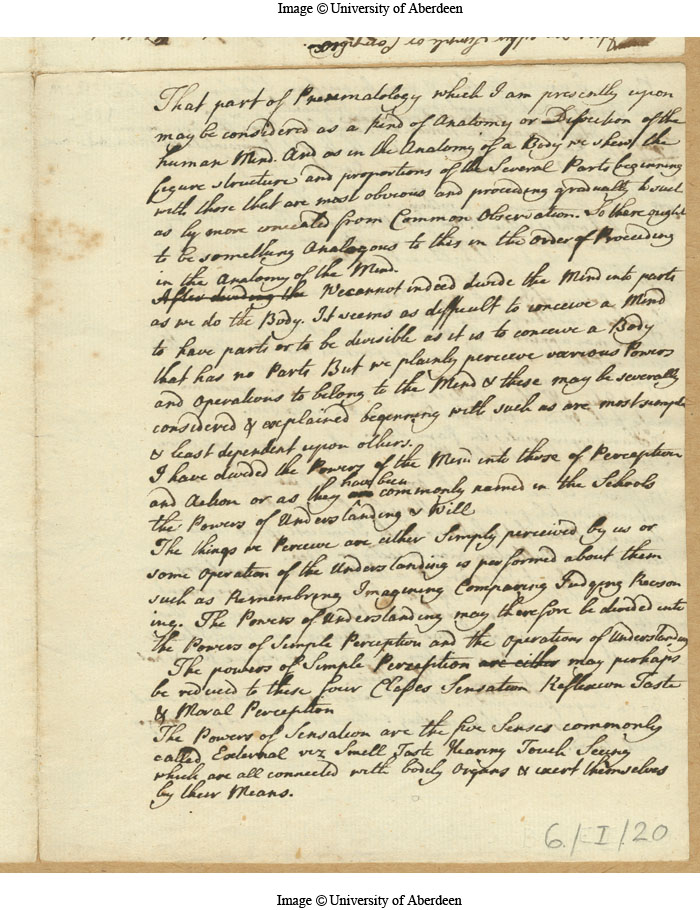 Image © University of Aberdeen
That part of Pneumatology which I am presently upon
may be considered as a kind of Anatomy or Dissection of the
human Mind. And as in the Anatomy of a Body we shew the
figure structure and proportions of the Several Parts beginning
with those that are most obvious and proceding gradually to such
as ly more concealed from Common Observation. So there ought
to be something Analogous to this in the Order of Proceeding
in the Anatomy of the Mind.
After dividing the We cannot indeed divide the Mind into parts
as we do the Body. It seems as difficult to conceive a Mind
to have parts or to be divisible as it is to conceive a Body
that has no Parts But we plainly perceive various Powers
and Operations to belong to the Mind & these may be severally
considered & explained beginning with such as are most simple
& least dependent upon others.
I have divided the Powers of the Mind into those of Perception
have been
and Action or as they are commonly named in the Schools
the Powers of Understanding & Will
The things we Perceive are either Simply perceived by us or
some Operation of the Understanding is performed about them
such as Remembring Imagining Comparing Judging Reason
ing. The Powers of Understanding may therefore be divided into
the Powers of Simple Perception and the Operations of Understanding
The powers of Simple Perception are either may perhaps
be reduced to these four Classes Sensation Reflexion Taste
& Moral Perception
The Powers of Sensation are the five Senses commonly
called External viz Smell Taste Hearing Touch Seeing
which are all connected with bodily Organs & exert themselves
by their Means.
6/I/20
Image © University of Aberdeen